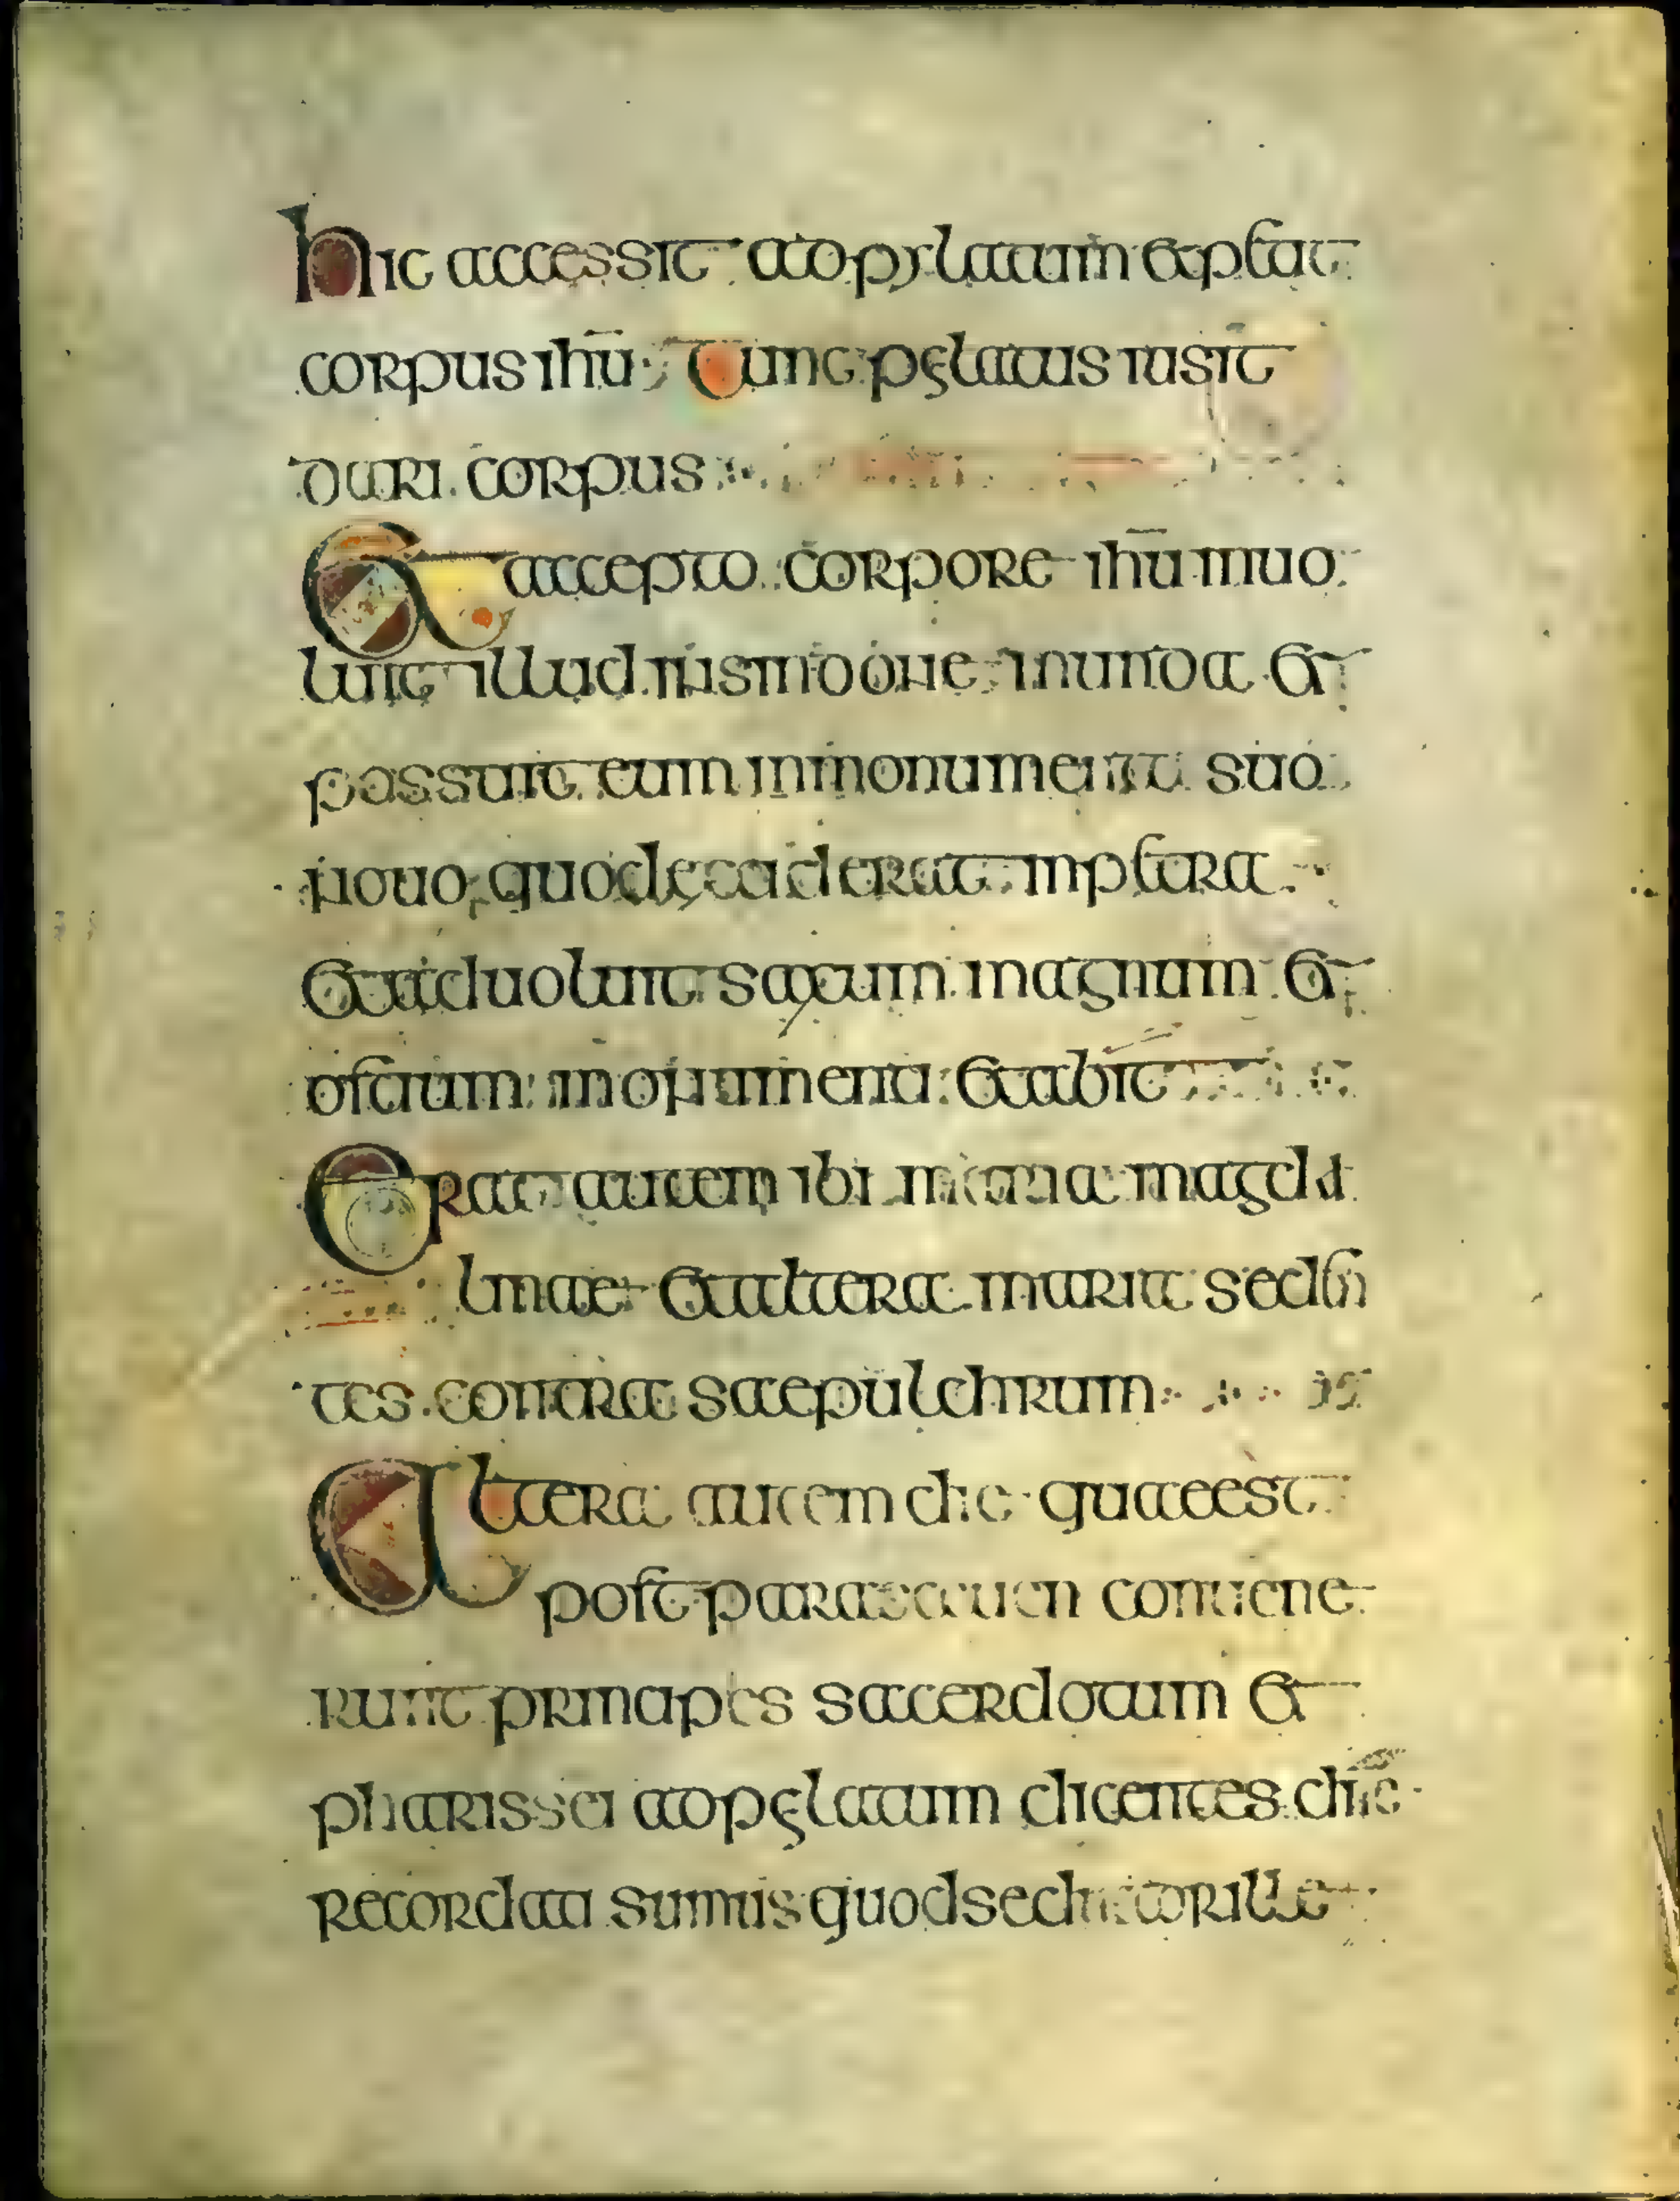 hic accessit adpylatum & petiit
corpus ihū Tunc pylatus iusit
dari corpus
Et accepto corpore ihū inuo
luit illud insindone munda &
possuit eum inmonumento suo
nouo quod exciderat inpetra
& aduoluit saxum magnum &
ostium monumenti & abiit
Erat autem ibi maria magda
linae & altera maria seden
tes contra saepulchrum
Altera autem die quae est
post parasceuen conuene
runt principes sacerdotum &
pharissei adpylatum dicentes dn̄e
recordati sumus quod seductor ille